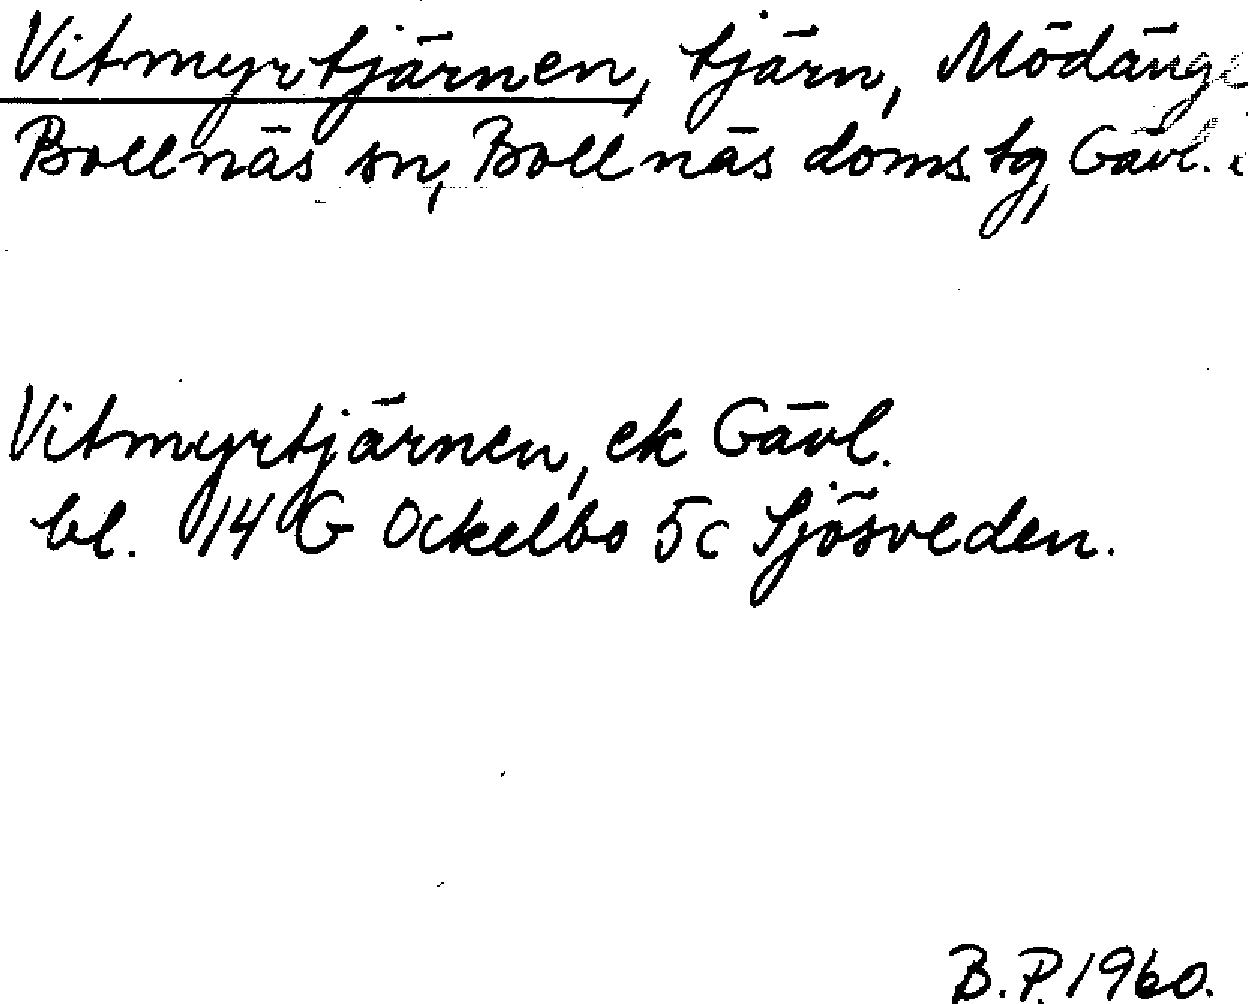 Vitmyrtjärnen, tjärn, Mödänge
Bollnäs sn, Bollnäs doms. tg, Gävl.
Vitmyrtjärnen, ek Gävl.
bl. 14 G Ockelbo 5c Sjösveden.
B.P. 1960.